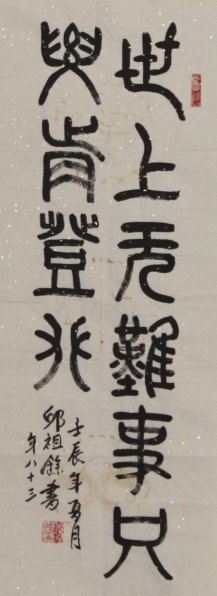 世上无難事只
要肯登攀
壬辰年夏月
祖書
年八十三